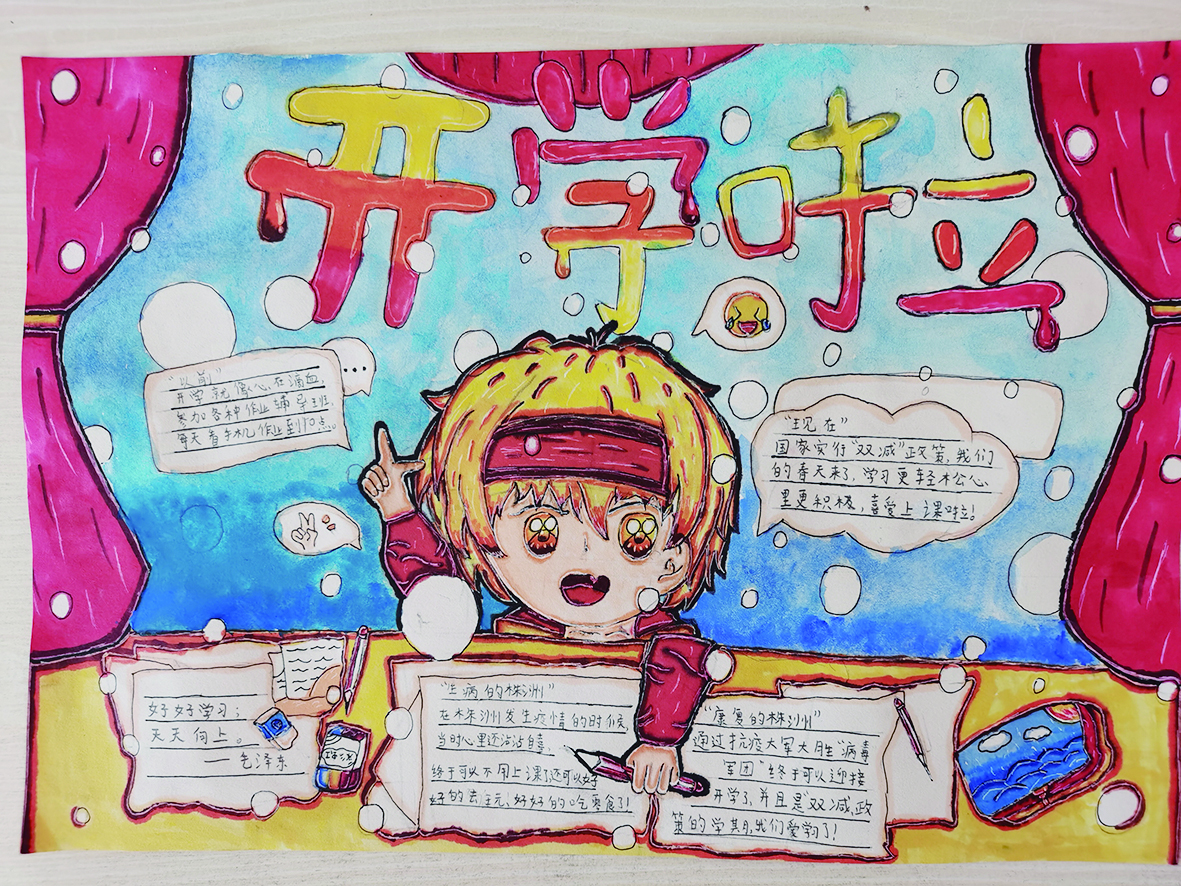 开学啦
"以前"
开学就像心在滴血,
参加各种作业辅导班
每天看手机作业到10点。
"现在"
国家实行"双减"政策,我们
的春天来了,学习更轻松心
里更积极,喜爱上课啦!
好好学习;
天天向上。
——毛泽东
"生病的株洲"
在株洲发生疫情的时候
当时心里还沾沾自喜,
终于可以不用上课了还可以好
好的去玩,好好的吃零食了!
"康复的株洲"
通过抗疫大军大胜"病毒
军团"终于可以迎接
开学了,并且是"双减"政
策的学期,我们爱学了!